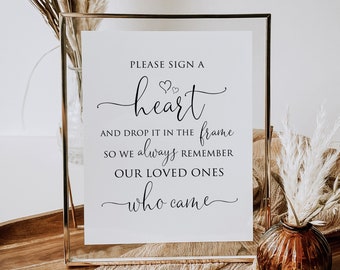 PLEASE SIGN A
heart
AND DROP IT IN THE frame
SO WE always REMEMBER
OUR LOVED ONES
who came